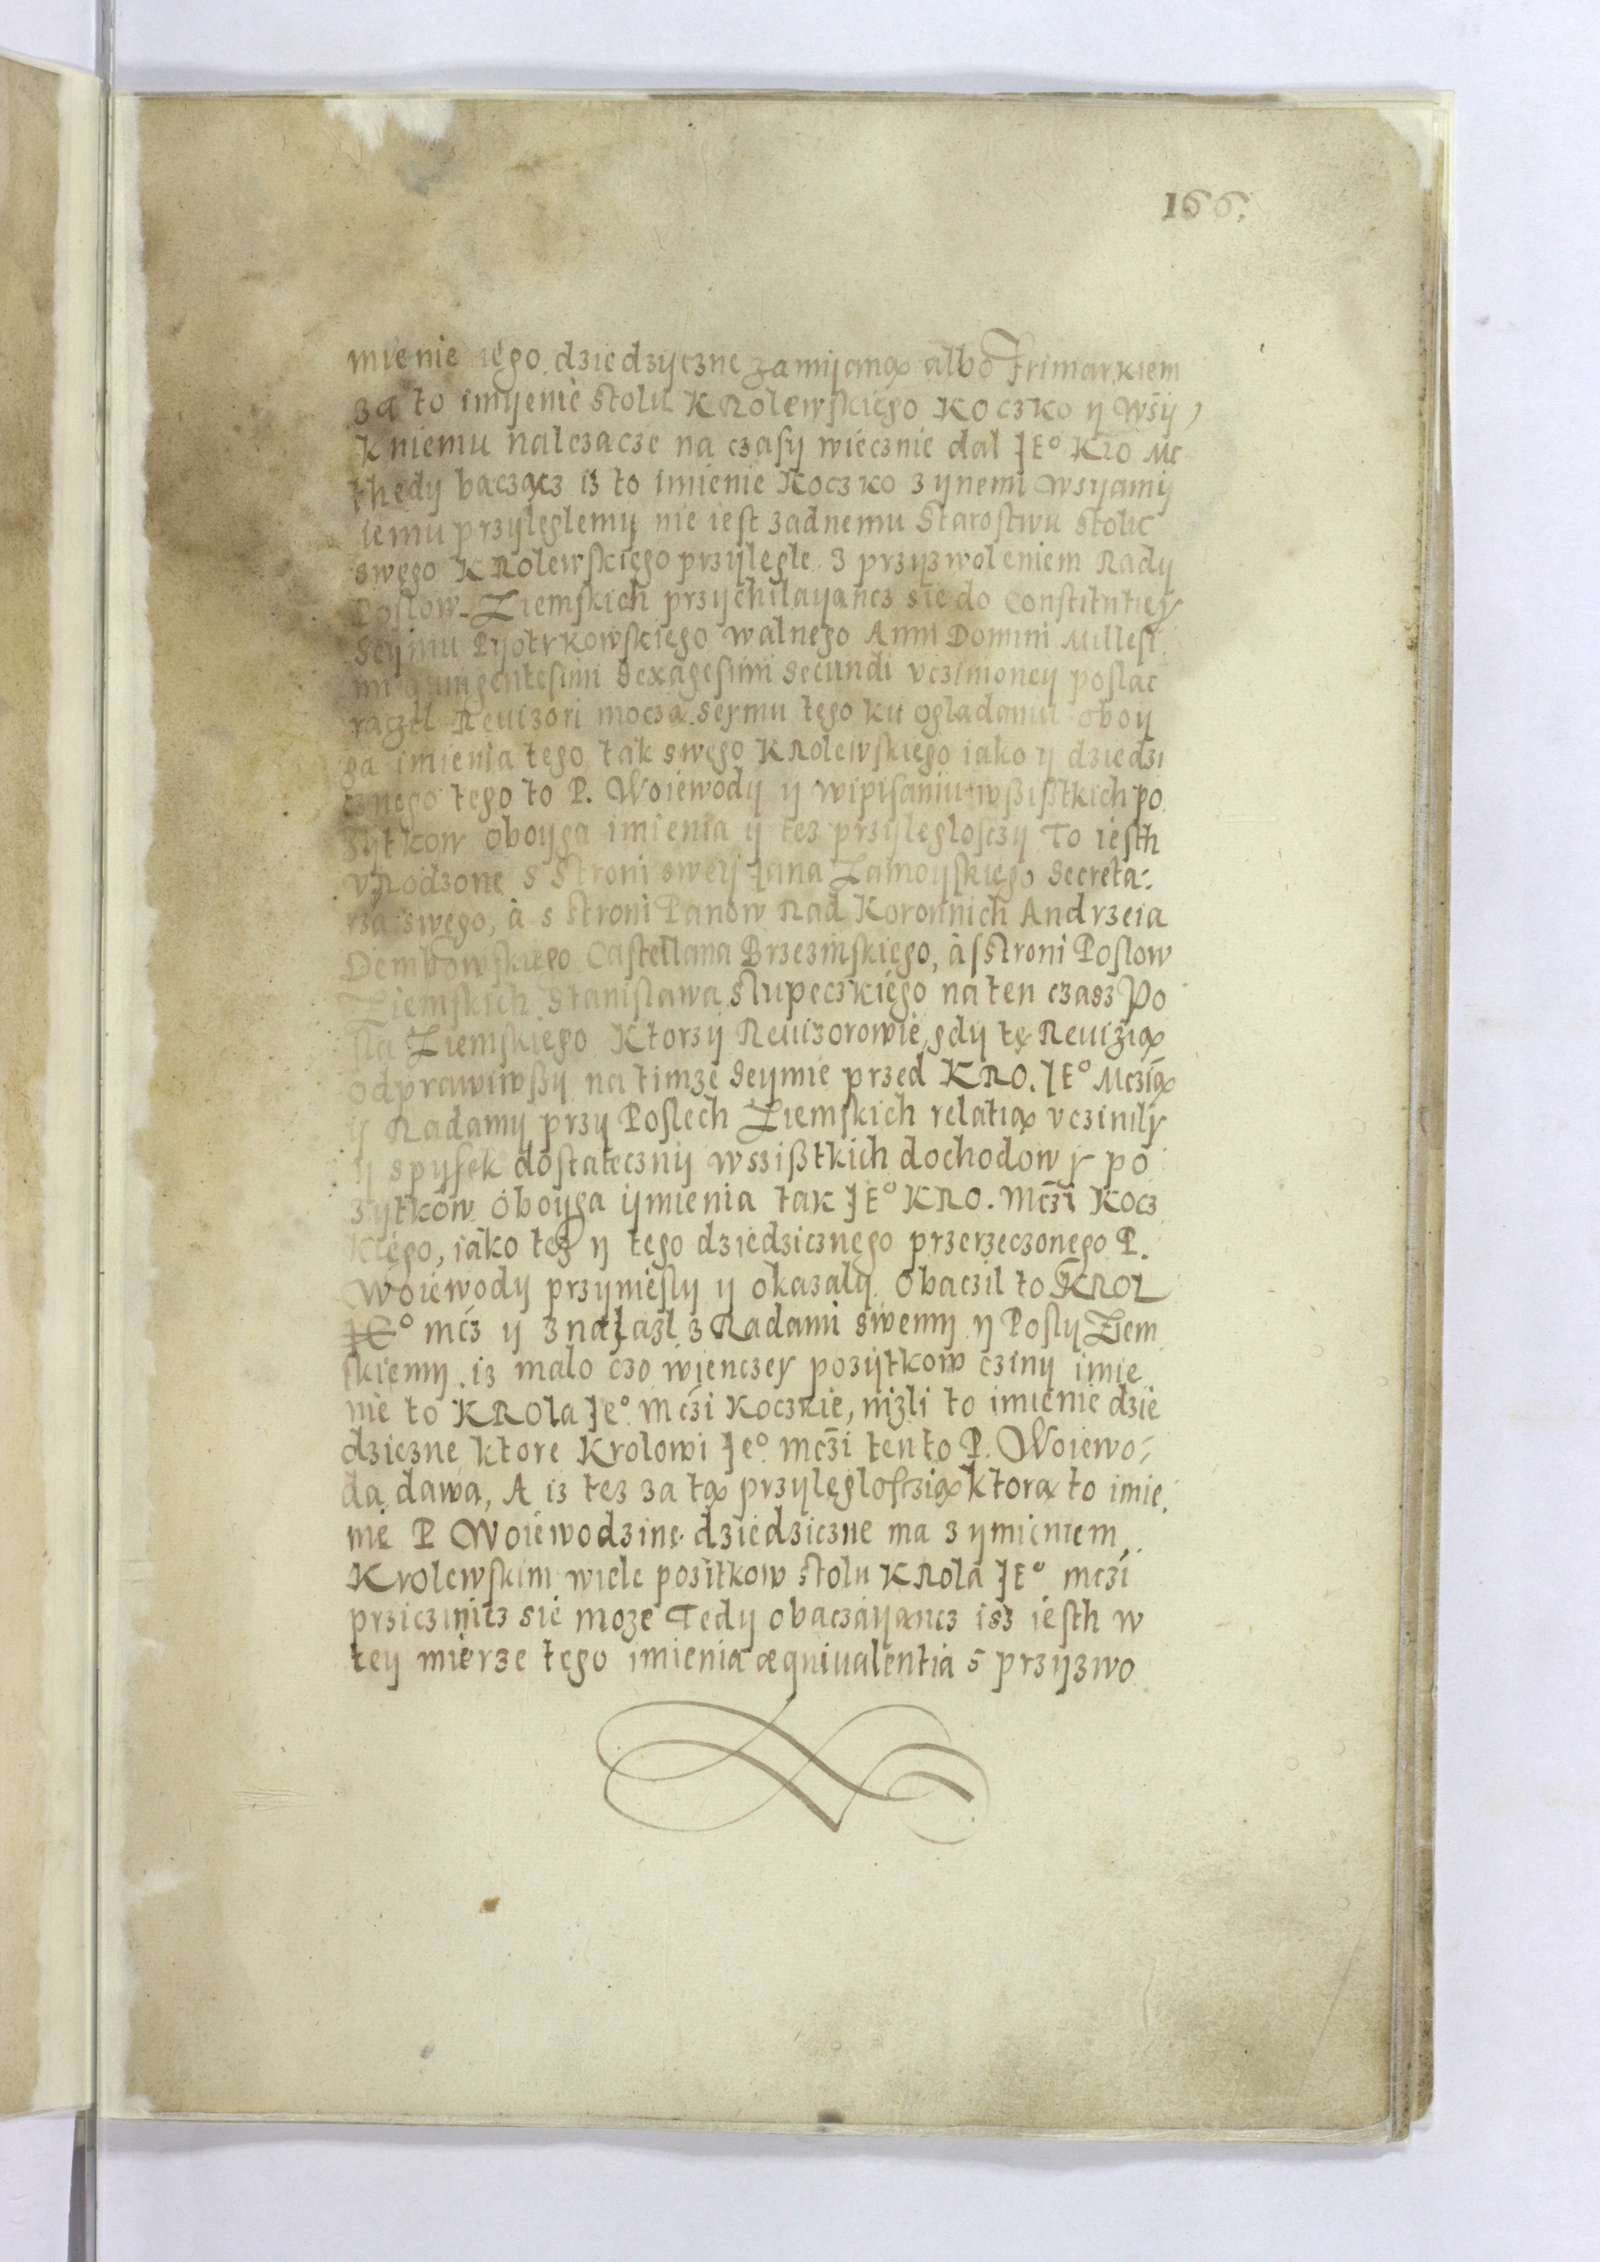 166.
mienie iego dziedzyczne zamijaną albo Frimarkiem
za to imyenie stolu KRolewskiego Koczko y wsy
k niemu nalezacze na czasy wiecznie dal JE° KRo Mc
thedy bacząncz iz to imienie Koczko z ynemi wsyamy
iemu przyleglemy nie iest zadnemu Starostwu stolu
swego KRolewskiego przylegle z przyzwoleniem Rady
Poslow Ziemskich przychilayancz sie do Constitutiey
Seymu Pyotrkowskiego walnego Anni Domini Millesi
mi quingentesimi Sexagesimi Secundi vczinioney poslac
raczil Reuizori mocza Seymu tego ku ogladaniu oboy
ga imienia tego tak swego KRolewskiego iako y dziedzi
cznego tego to P. Woiewody y wipisaniu wßißtkich po
zytkow oboyga imienia y tez przyleglosczy To iesth
vRodzone s Stroni swey Jana Zamoyskiego Secreta:
rza swego, à s stroni Panow Rad Koronnich Andrzeia
Dembowskiego Castellana Brzezinskiego, à s stroni Poslow
Ziemskich Stanislawa Slupeczkiego na ten czasz Po
sla Ziemskiego Ktorzy Reuizorowie, gdy tę Reuizią
odprawiwßy na timze Seymie przed KRO. JE° Mczią
y Radamy przy Poslech Ziemskich relatią vczinily
y spysek dostateczny wszißtkich dochodow y po
zytkow oboyga ymienia tak JE° KRO. Mczi Kocz
kiego, iako tez y tego dziedzicznego przerzeczonego P.
Woiewody przyniesly y okazaly. Obaczil to KROL
JE° mcz y znalazl z Radami swemy y Posly Ziem
skiemy iz malo czo wienczey pozytkow cziny imie
nie to KROla Je° Mczi Koczkie, nizli to imienie dzie
dziczne ktore Krolowi Je° mczi ten to P. Woiewo:
da dawa, A iz tez za tą przyległosczią ktora to imie
nie P Woiewodzine dziedziczne ma z ymieniem
Krolewskim wiele pozitkow stolu KRola JE° mczi
przicziniicz sie moze Tedy obaczayancz isz iesth w
tey mierze tego imienia æquiualentia s przyzwo